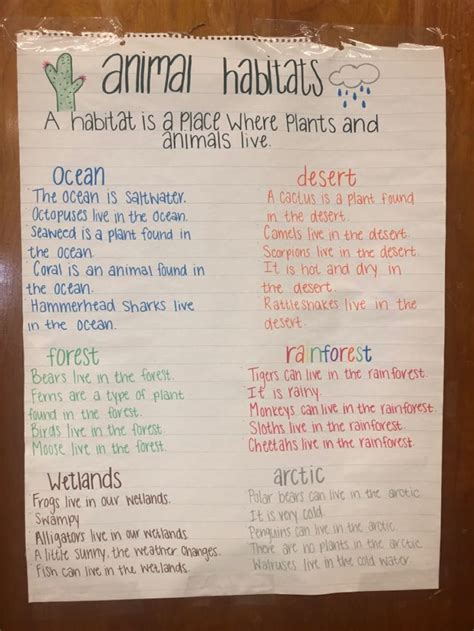 animal habitats
A habitat is a place where plants and
animals live.
Ocean
The ocean is saltwater.
Octopuses live in the ocean.
Seaweed is a plant found in
the ocean.
Coral is an animal found in
the ocean.
Hammerhead Sharks live
in the ocean.
desert
A cactus is a plant found
in the desert.
Camels live in the desert.
Scorpions live in the desert.
It is hot and dry in
the desert.
Rattlesnakes live in the
desert.
forest
Bears live in the forest.
Ferns are a type of plant
found in the forest.
Birds live in the forest.
Moose live in the forest.
rainforest
Tigers can live in the rainforest.
It is rainy.
Monkeys can live in the rainforest.
Sloths live in the rainforest.
Cheetahs live in the rainforest.
Wetlands
Frogs live in our wetlands.
Swampy
Alligators live in our wetlands
A little sunny, the weather changes.
Fish can live in the wetlands.
arctic
Polar bears can live in the arctic
It is very cold.
Penguins can live in the arctic.
There are no plants in the arctic.
Walruses live in the cold water